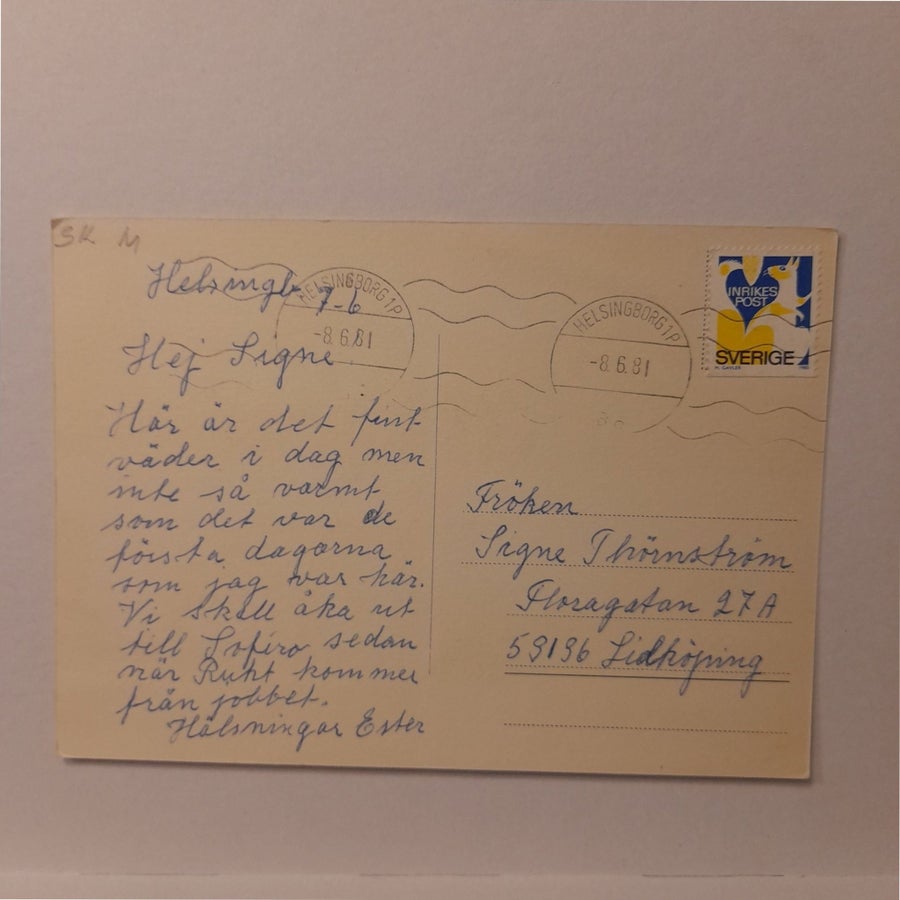 SK M
Helsingb 7-6
HELSINGBORG 1P
-8.6.81
HELSINGBORG 1P
-8.6.81
INRIKES
POST
SVERIGE
Hej Signe
Här är det fint
väder i dag men
inte så varmt
som det var de
första dagarna
som jag var här.
Vi skall åka ut
till Sofiro sedan
när kommer
från jobbet.
Hälsningar Ester
Fröken
Signe Thörnström
Floragatan 27A
53136 Lidköping